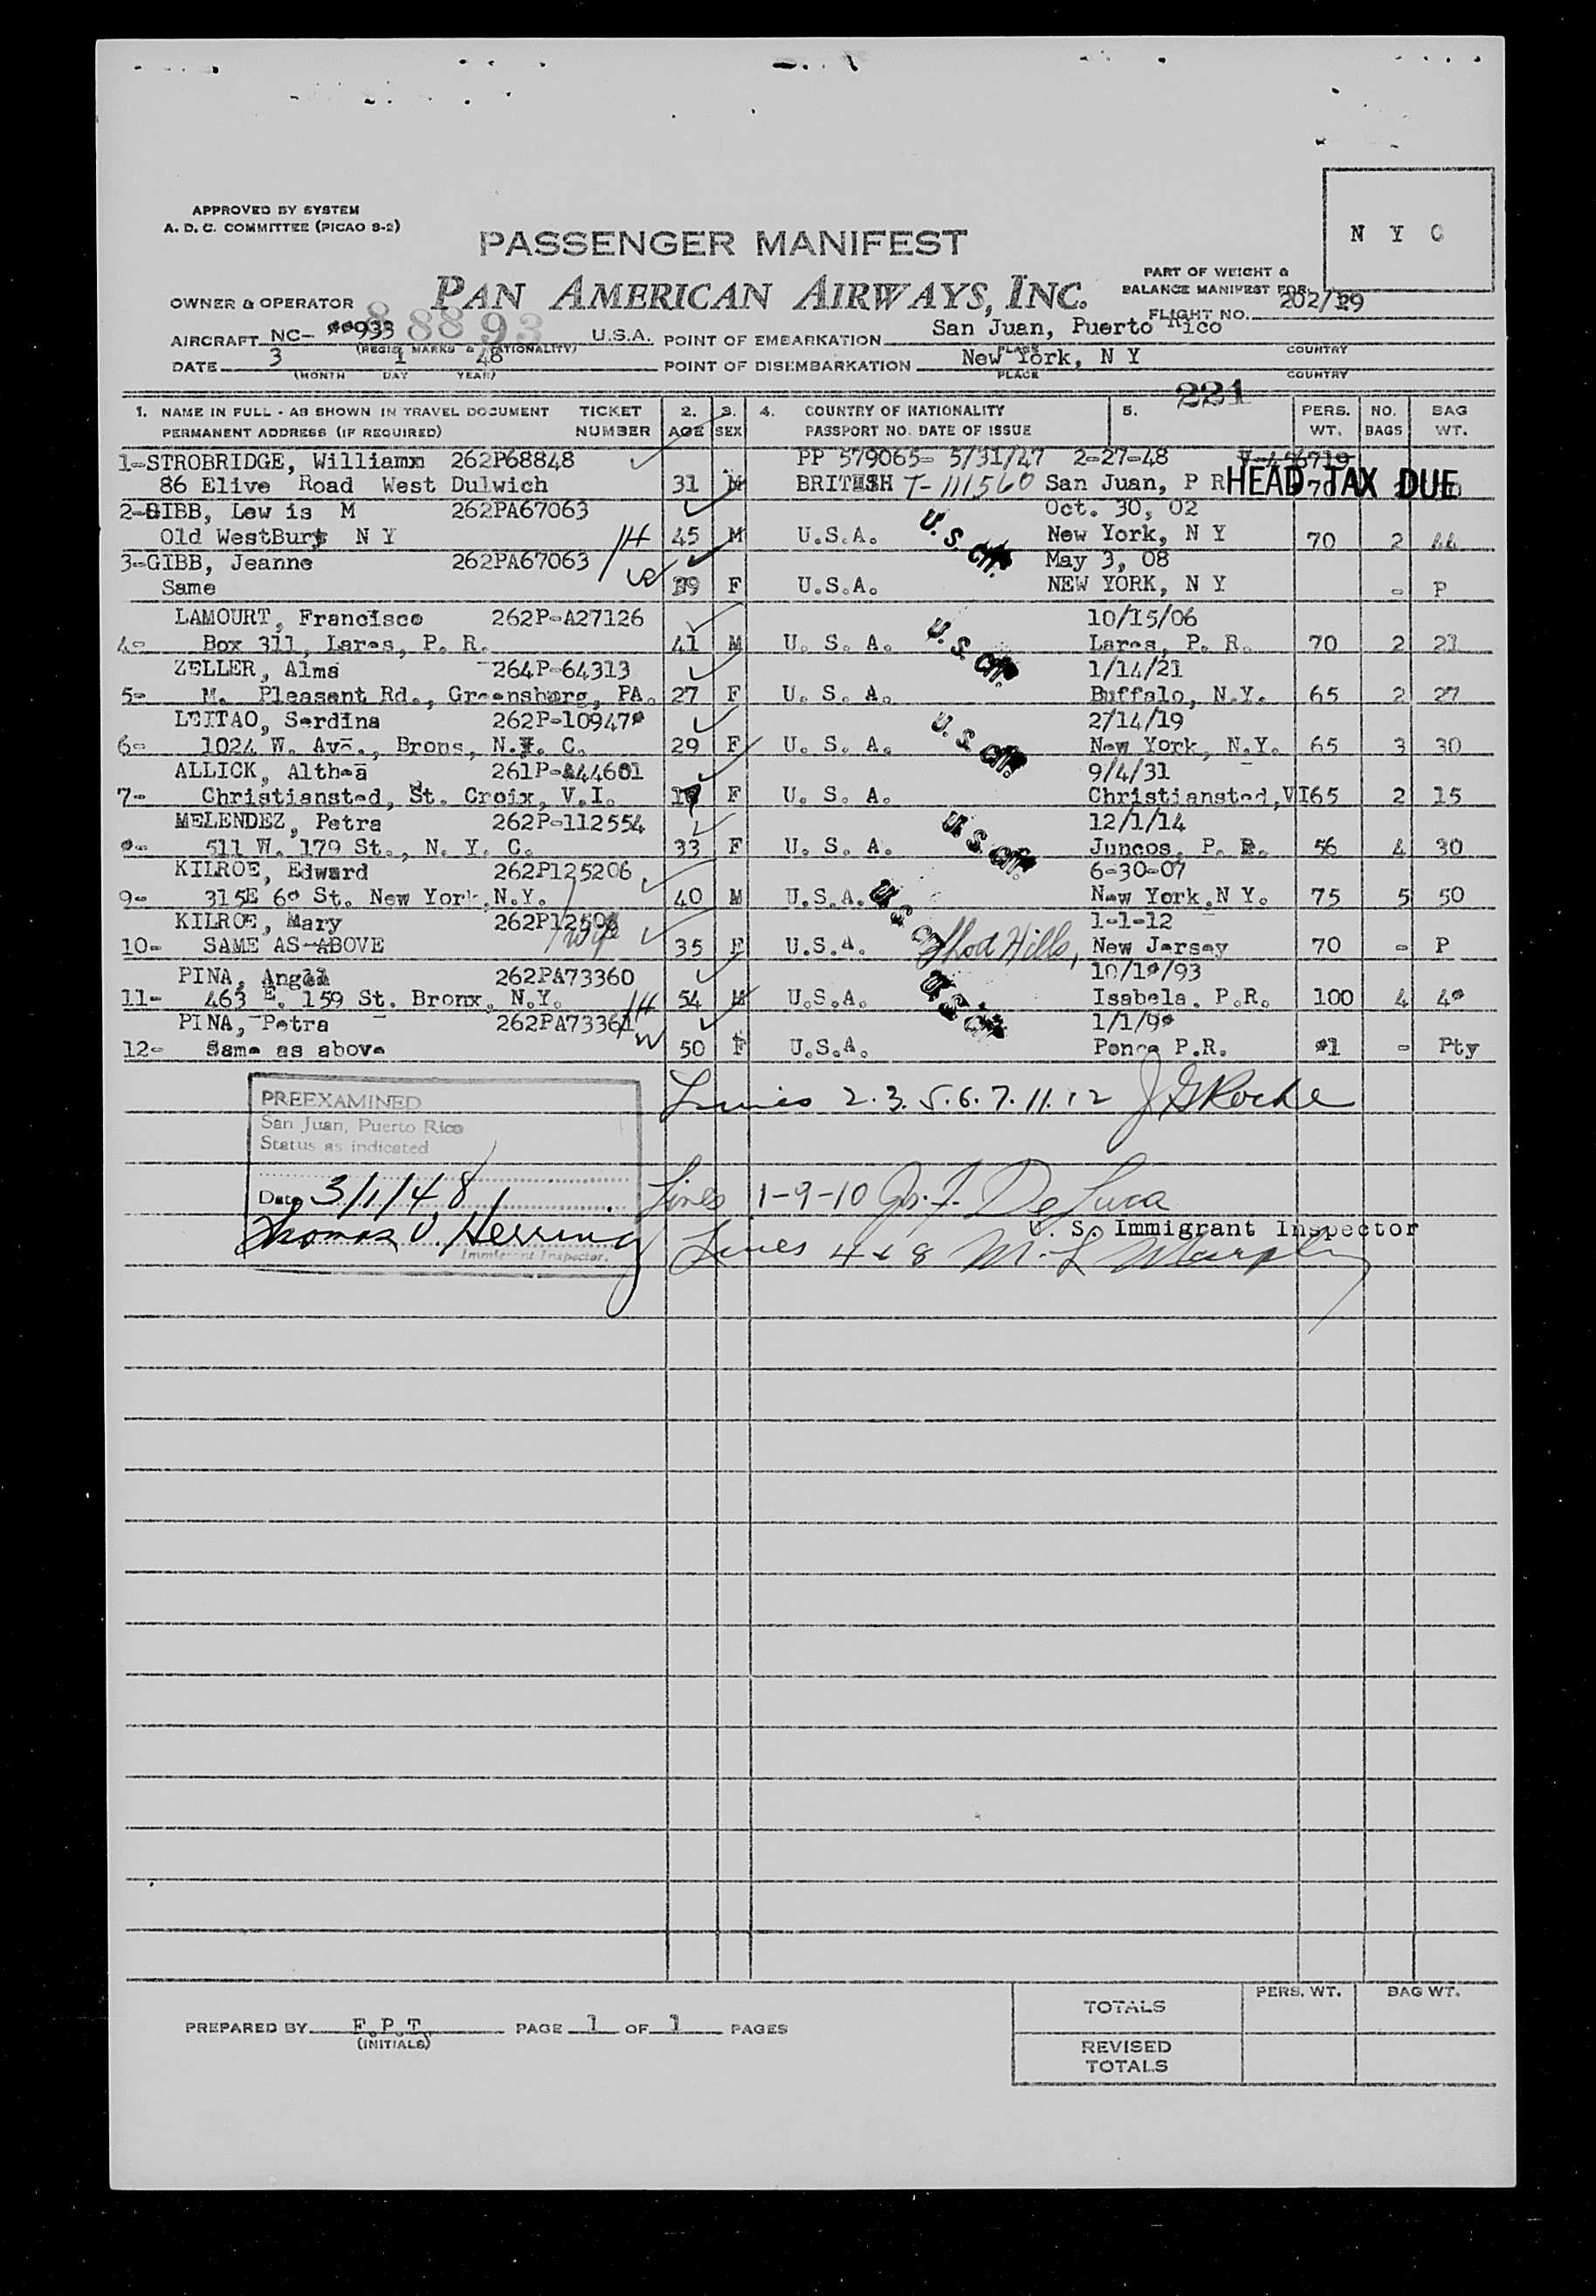 APPROVED BY SYSTEM
A. D. C. COMMITTEE (PICAO 8-2)
N Y C
PASSENGER MANIFEST
PAN AMERICAN AIRWAYS, INC.
PART OF WEIGHT &
BALANCE MANIFEST FOR
OWNER & OPERATOR
88893
FLIGHT NO. 202/
AIRCRAFT NC- **933 U.S.A. POINT OF EMBARKATION San Juan, Puerto Rico
(REGIS. MARKS & NATIONALITY) PLACE COUNTRY
DATE 3 1 48 POINT OF DISEMBARKATION New York, N Y
(MONTH DAY YEAR) PLACE COUNTRY
221
1. NAME IN FULL - AS SHOWN IN TRAVEL DOCUMENT TICKET 2. 3. 4. COUNTRY OF NATIONALITY 5. PERS. NO. BAG
PERMANENT ADDRESS (IF REQUIRED) NUMBER AGE SEX PASSPORT NO. DATE OF ISSUE WT. BAGS WT.
1-STROBRIDGE, William 262P68848 PP 579065- 5/31/47 2-27-48
86 Elive Road West Dulwich 31 M BRITISH T-111560 San Juan, P R HEAD TAX DUE 70
2-GIBB, Lew is M 262PA67063 Oct. 30, 02
Old WestBury N Y H 45 M U.S.A. U.S. Cit. New York, N Y 70 2 44
3-GIBB, Jeanne 262PA67063 May 3, 08
Same W 39 F U.S.A. NEW YORK, N Y - P
LAMOURT, Francisco 262P-A27126 10/15/06
4- Box 311, Lares, P. R. 41 M U. S. A. U.S. Cit. Lares, P. R. 70 2 21
ZELLER, Alma 264P-64313 1/14/21
5- M. Pleasant Rd., Greensburg, PA. 27 F U. S. A. Buffalo, N.Y. 65 2 27
LEITAO, Serdina 262P-10947* 2/14/19
6- 1024 W. Ave., Brons, N.Y. C. 29 F U. S. A. U.S. Cit. New York, N.Y. 65 3 30
ALLICK, Althea 261P-A44601 9/4/31
7- Christiansted, St. Croix, V.I. F U. S. A. Christiansted,VI 65 2 15
MELENDEZ, Petra 262P-112554 12/1/14
*- 511 W. 179 St., N. Y. C. 33 F U. S. A. U.S. Cit. Juncos, P. R. 56 4 30
KILROE, Edward 262P125206 6-30-07
9- 315E 6* St. New York,N.Y. 40 M U.S.A. U.S. Cit. New York,N Y. 75 5 50
KILROE, Mary wife 1-1-12
10- SAME AS ABOVE 35 F U.S.A. Short Hills, New Jersey 70 - P
PINA, Angel 262PA73360 10/1*/93
11- 463 E. 159 St. Bronx, N.Y. H 54 M U.S.A. U.S. Cit. Isabela, P.R. 100 4 4*
PINA, Petra 262PA73361 W 1/1/9*
12- Same as above 50 F U.S.A. Ponce P.R. *1 - Pty
PREEXAMINED
San Juan, Puerto Rico
Status as indicated
Date 3/1/48
Thomas V. Herring
Immigrant Inspector.
Lines 2.3.5.6.7.11.12 J G Roche
Lines 1-9-10 Jos. F. DeLuca
U. S. Immigrant Inspector
Lines 4 & 8 M. L. Murphy
TOTALS PERS. WT. BAG WT.
REVISED
TOTALS
PREPARED BY F.P.T. PAGE 1 OF 1 PAGES
(INITIALS)